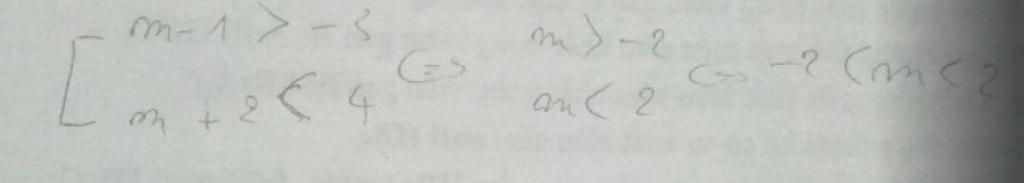 [ m - 1 > -3 <=> m > -2 <=> -2 < m < 2
m + 2 < 4 m < 2